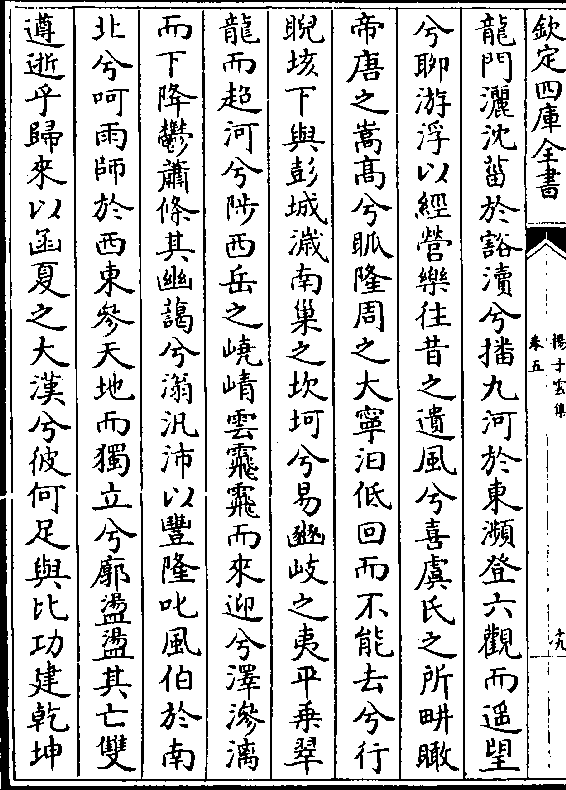 欽定四庫全書
揚子雲集
卷五
十九
龍門灑沈菑於豁瀆兮播九河於東瀕登六觀而遥望
兮聊游浮以經營樂往昔之遺風兮喜虞氏之所畊瞰
帝唐之嵩髙兮眽隆周之大寧汨低回而不能去兮行
睨垓下與彭城濊南巢之坎坷兮易豳岐之夷平乗翠
龍而超河兮陟西岳之嶢崝雲霏霏而來迎兮澤滲漓
而下降鬱蕭條其幽藹兮滃汎沛以豐隆叱風伯於南
北兮呵雨師於西東參天地而獨立兮廓盪盪其亡雙
遵逝乎歸來以函夏之大漢兮彼何足與比功建乾坤